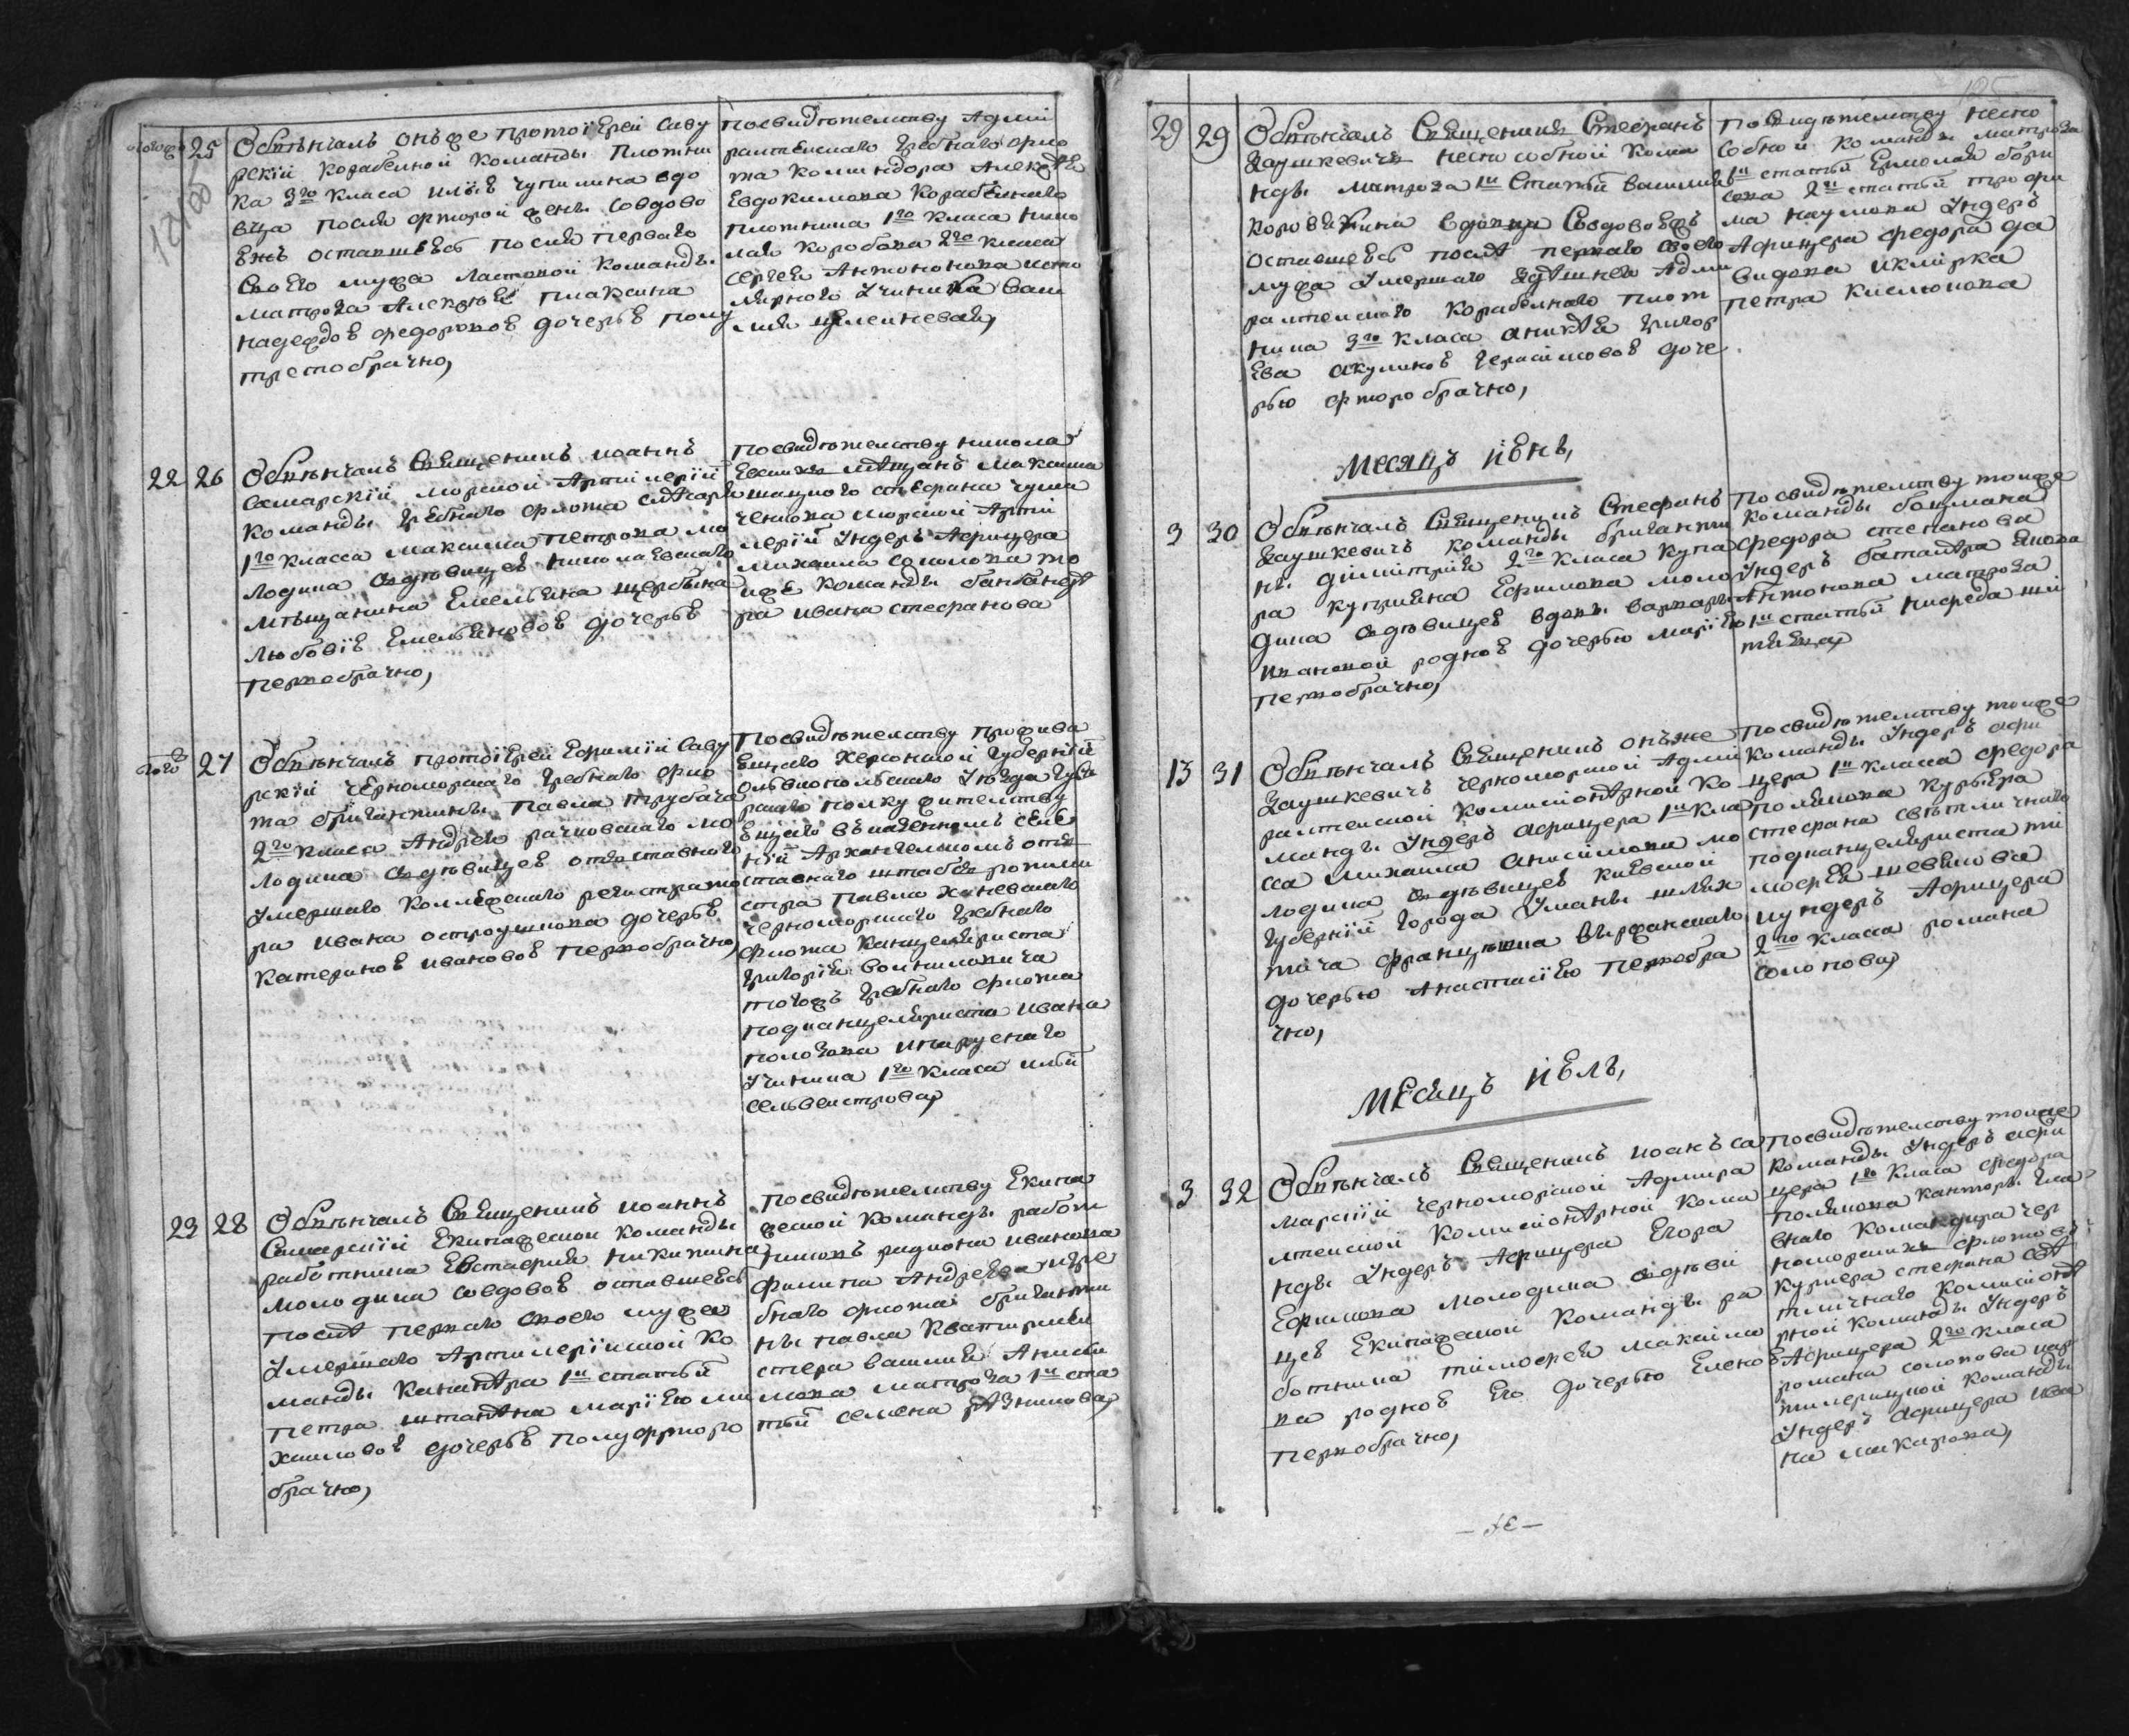 125
тогож 25 Обвѣнчалъ онъже протоіерей Саву
рскій корабелной команды плотни
ка 3го класа Ильѣ Чупилина вдо
вца после фторой жены совдово
ѣнъ оставшеюсь после перваго
своего мужа ластовой команды
матроза Алексѣя Плаксина
Надеждоѣ Федоровоѣ дочерьѣ полу
третобрачно,
Посвидѣтелству Адми
ралтейскаго гребнаго фло
та командора Алексѣя
Евдокимова корабелнаго
плотника 1го класа Нико
лая Коробова 2го класа
Сергея Антононова
ученика Васи
лия
22 26 Обвѣнчалъ Священникъ Иоаннъ
Самарскій морской Артилерій
команды гребнаго флота слѣсаря
1го класса Максима Петрова мо
лодика здѣвицеѣ Николаевскаго
мѣщанина Емельяна Щербина
Любовіѣ Емельяновоѣ дочерьѣ
первобрачно,
Посвидѣтелству Никола
евскихъ мѣщанъ Максима
Стефана Чума
ченкова морской Арти
лерій Ундеръ Афицера
Михаила Соколова то
иже команды банбандѣ
ра Ивана Стефанова
того 27 Обвѣнчалъ протоіерей Ефимій Саву
рскій Черноморскаго гребнаго фло
та бригантины Павла трубача
2го класа Андрея Рачковскаго мо
лодика здѣвицеѣ отставнаго
умершаго колежскаго регистрато
ра Ивана Остроушкова дочерьѣ
Катериноѣ Ивановоѣ первобрачно,
Посвидѣтелству прожива
ющаго Херсонской губерній
Олвиополскаго уѣзда Бугс
каго полку жителству
ющаго въ казенномъ селе
ній Архангелскомъ отъ
ставнаго штабсъ ротми
стра Павла Хиневскаго
Черноморскаго гребнаго
флота канцеляриста
Григорія Войниловича
тогожъ гребнаго флота
подканцеляриста Ивана
Половова ипарускаго
ученика 1го класа Ильй
Селвестрова,
23 28 Обвѣнчалъ Священникъ Иоаннъ
Самарскій Екипажеской команды
работника Евстафия Никитина
молодика совдовоѣ оставшеюсь
послѣ перваго своего мужа
умершаго Артилерійской ко
манды канапѣра 1й статьй
Петра Штанѣка Маріею Ми
хаиловоѣ дочерьѣ полуфторо
брачно,
Посвидѣтелству Екипа
жеской команды работ
никовъ Радиона Иванова
Филипа Андреева игре
бнаго флота бриганти
ны Павла квантирми
стера Василия Аниси
мова матроза 1й ста
тьй Семена Рѣзникова,
29 29 Обвѣнчалъ Священникъ Стефанъ
Заушкевичъ неспособной кома
нды матроза 1й Статьй Василия
Коровякина вдовца совдовоюжъ
оставшеюсь послѣ перваго своего
мужа умершаго здѣшнего Адми
ралтейскаго корабелнаго плот
ника 3го класа Аникѣя Григор
ева Акулиноѣ Герасимовоѣ доче
рью фторобрачно,
Посвидѣтелству неспо
собной команды матроза
1й статьй Ермолая Бори
сова 2й статьй Трофи
ма Наумова Ундеръ
Афицера Федора Да
видова иклирка
Петра Кислюкова
Месяцъ июнь,
3 30 Обвѣнчалъ Священникъ Стефанъ
Заушкевичъ команды бриганти
ны Димитрия 2го класа купа
ра Куприяна Ефимова моло
дика здѣвицеѣ вдовы Варвары
Ивановой родноѣ дочерью Маріею
первобрачно,
Посвидѣтелству тоиже
команды боцмана
Федора Степанова
Ундеръ баталѣра Якова
Антонова матроза
1й статьй Никфеда
13 31 Обвѣнчалъ Священникъ онъже
Заушкевичъ Черноморской Адми
ралтейской комисионѣрной ко
манды Ундеръ Афицера 1й кла
сса Михаила Анисимова мо
лодика здѣвицеѣ Киевской
губерній города Умани шлях
тича Францышка Вержанскаго
дочерью Анастасіею первобра
чно,
Посвидѣтелству тоиже
команды Ундеръ афи
цера 1й класа Федора
Полякова курьера
Стефана Свѣтличнаго
подканцеляриста Ти
мофея Шевякова
иундеръ Афицера
2го класса Романа
Солопова,
Месяцъ июль,
3 32 Обвѣнчалъ Священникъ Иоанъ Са
марскій Черноморской Адмира
лтейской комисионѣрной кома
нды Ундеръ Афицера Егора
Ефимова молодика здѣви
цеѣ Екипажеской команды ра
ботника Тимофея Максимо
ва родноѣ его дочерью Еленоѣ
первобрачно,
Посвидѣтелству тоиже
команды Ундеръ афи
цера 1го класа Федора
Полякова канторы гла
внаго командира Чер
номорскихъ флотовъ
курьера Стефана Свѣ
тличнаго комисионѣ
рной команды Ундеръ
Афицера 2го класа
Романа Солопова иар
тилерицкой команды
Ундеръ Афицера Ива
на Макарова,